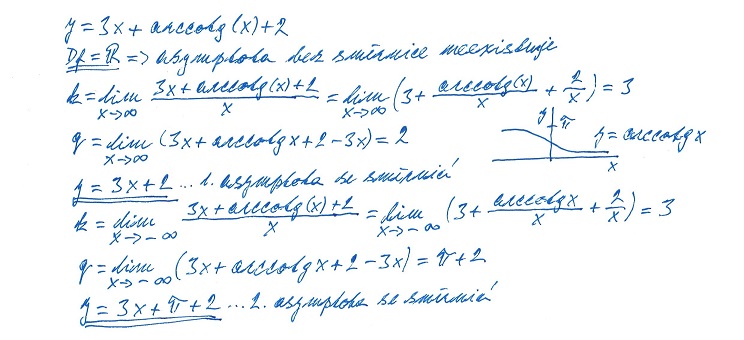 y = 3x + arccotg(x) + 2
Df = ℝ => asymptota bez směrnice neexistuje
k = lim x→∞ (3x + arccotg(x) + 2)/x = lim x→∞ (3 + arccotg(x)/x + 2/x) = 3
q = lim x→∞ (3x + arccotg x + 2 - 3x) = 2
y π y = arccotg x x
y = 3x + 2 ... 1. asymptota se směrnicí
k = lim x→-∞ (3x + arccotg(x) + 2)/x = lim x→-∞ (3 + arccotg x/x + 2/x) = 3
q = lim x→-∞ (3x + arccotg x + 2 - 3x) = π + 2
y = 3x + π + 2 ... 2. asymptota se směrnicí